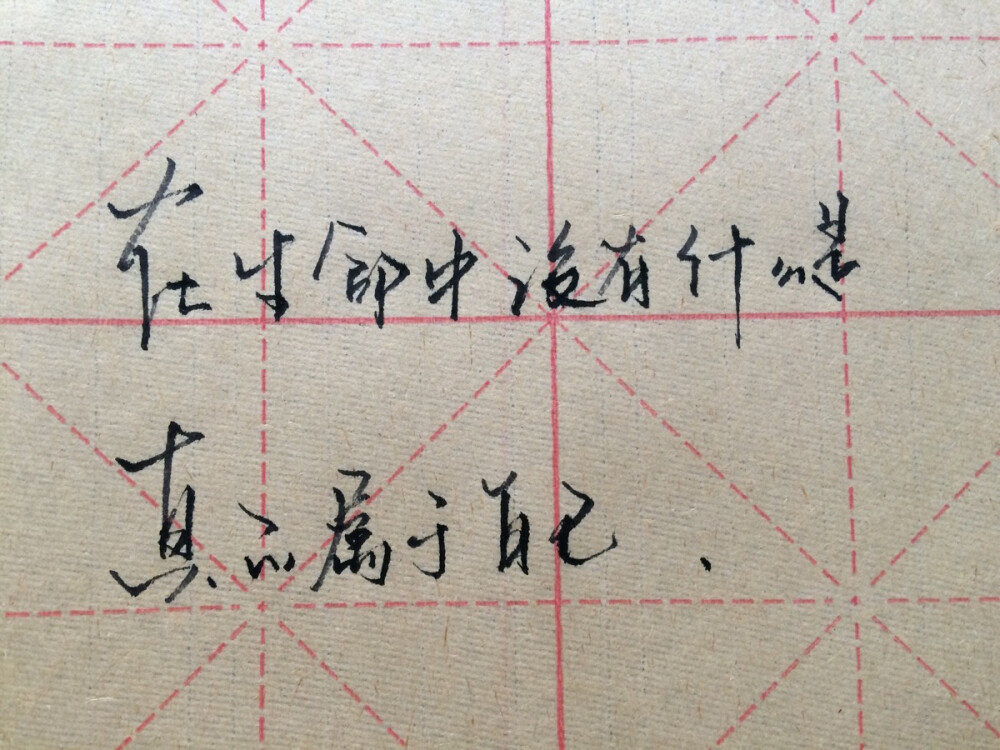 在生命中没有什么是
真正属于自己.